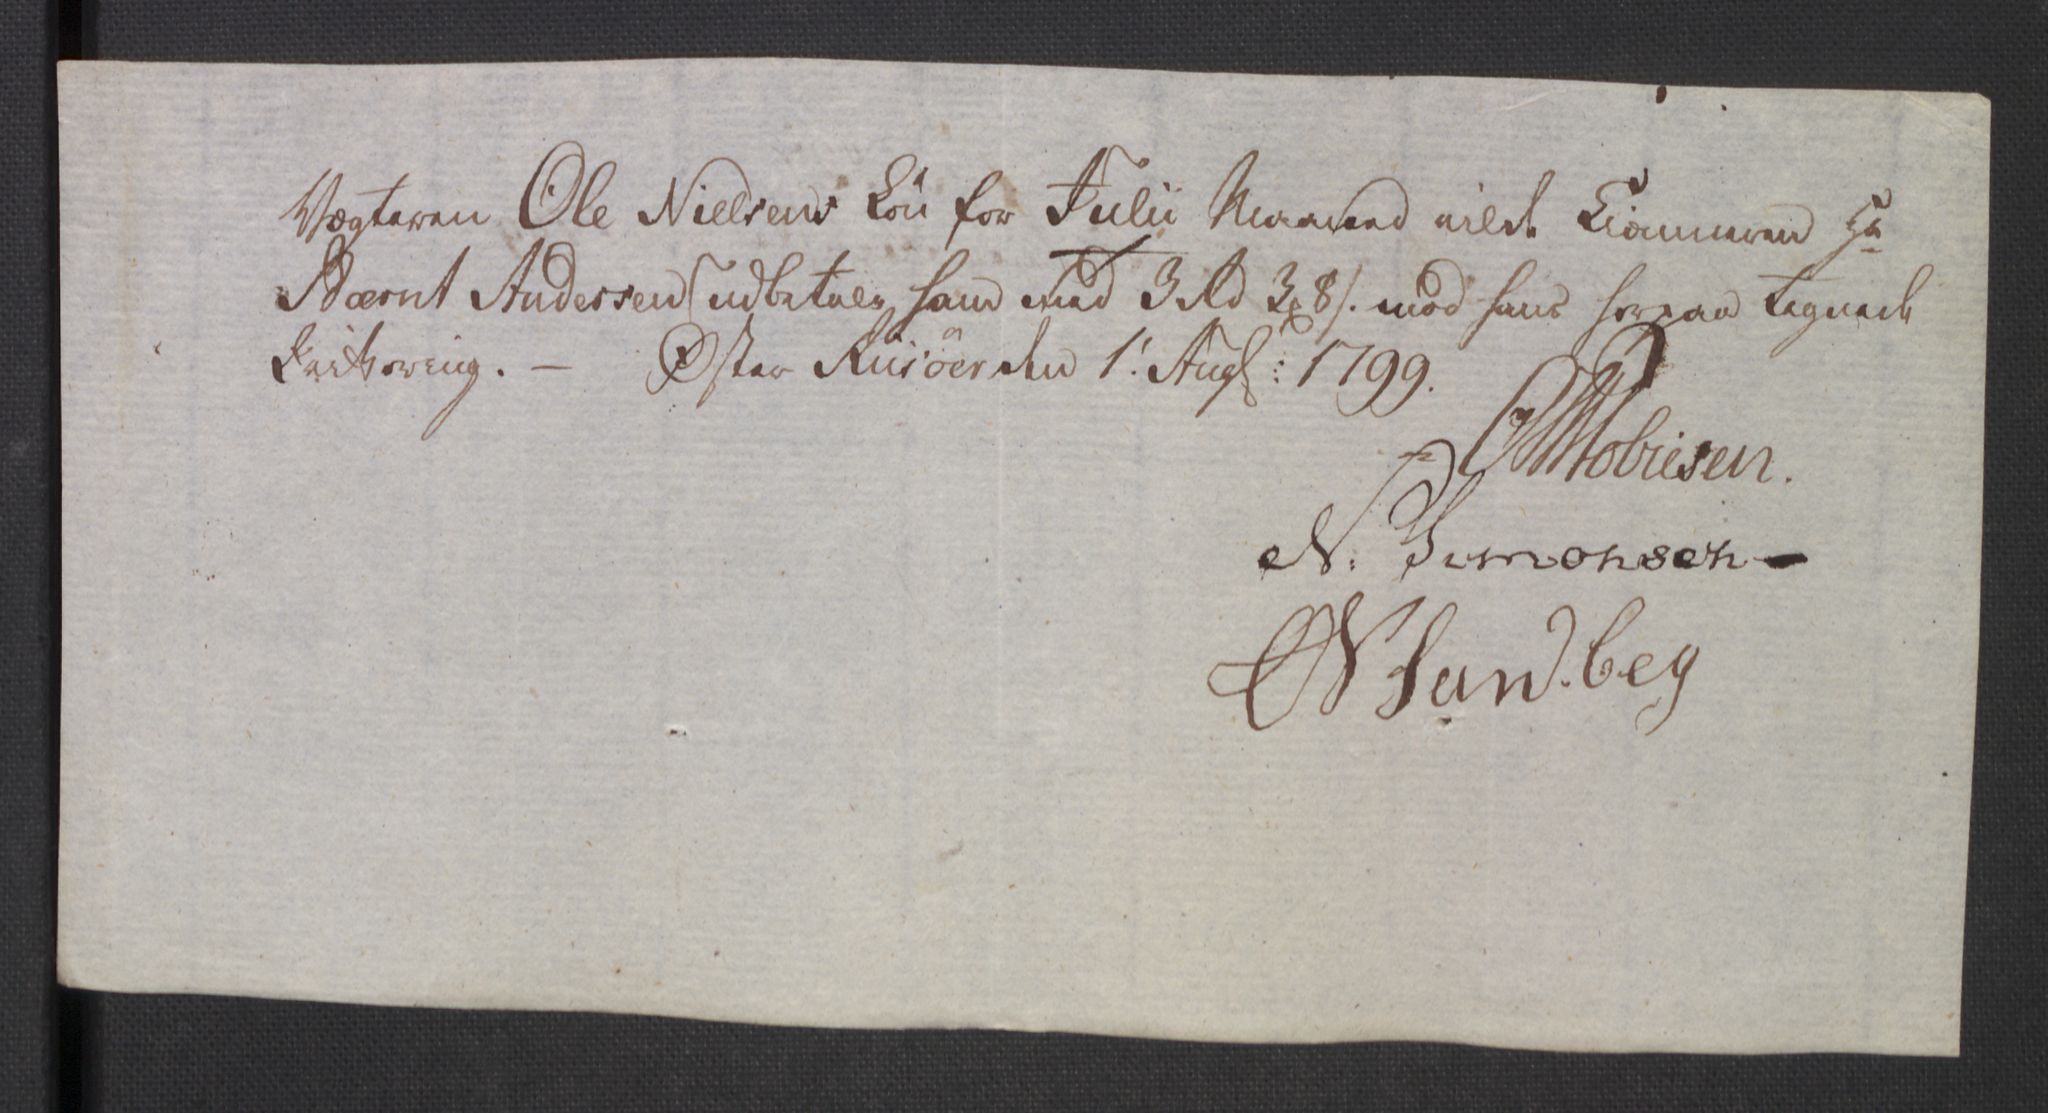 Vægteren Ole Nielsens Lön for Julii Maaned vilde Kiæmneren Hr
Bærnt Andersen udbetale ham med 3 Rd 3 # 8 s. mod hans herpaa tegnede
Qvittering. — Øster Riisöer den 1.' Augs: 1799.
Tobiesen.
N. Simonsen —
N Sundbeg